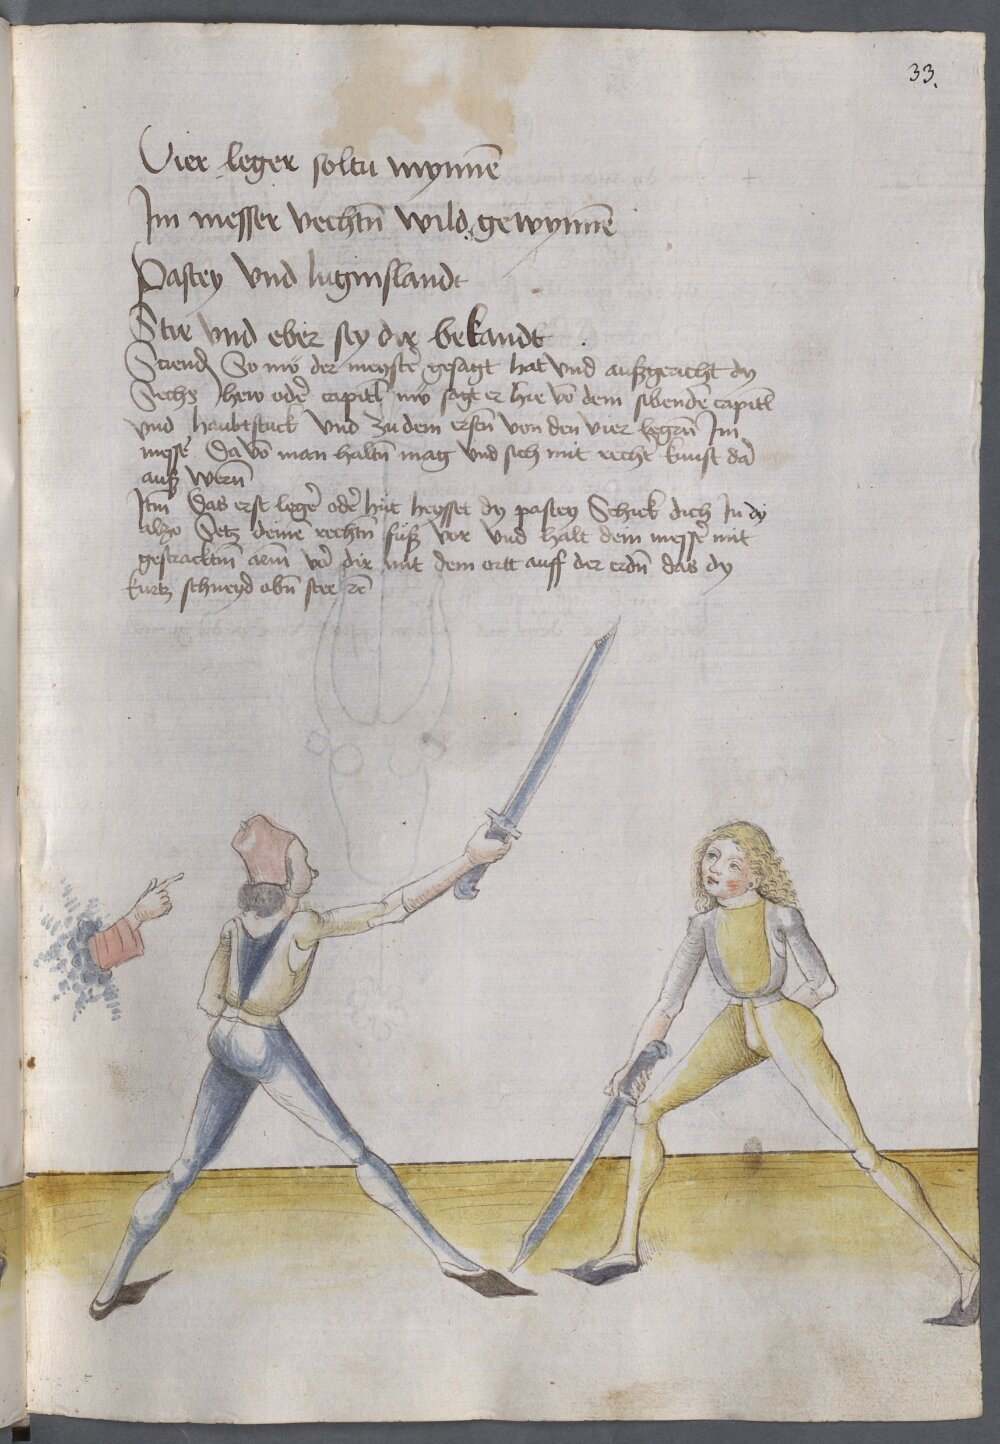 33.
Vier leger soltu mynnē
Im messer vechtn̄ wild gewynnē
Pastey vnd luginslandt
Stir vnd eber sey dir bekandt
So nw̄ der meystē gesagt hat vnd aufzgericht dy
Sechs hew odē capitl nw̄ sagt er hie vō dem sibendē capitl
vnd haubtstuck vnd zu dem erstn̄ von den vier legern̄ Im
messē Da vō man haltn̄ mag vnd sich mit rechtē kunst da
auß wern̄
Itm̄ Das erst legē odē hut heysset dy pastey Schick dich In dy
alzo Setz deinē rechtn̄ fuß vor vnd halt dein messē mit
gestracktm̄ arm̄ vō dir mit dem ortt auff der erdn̄ das dy
kurtz schneyd obn̄ stee